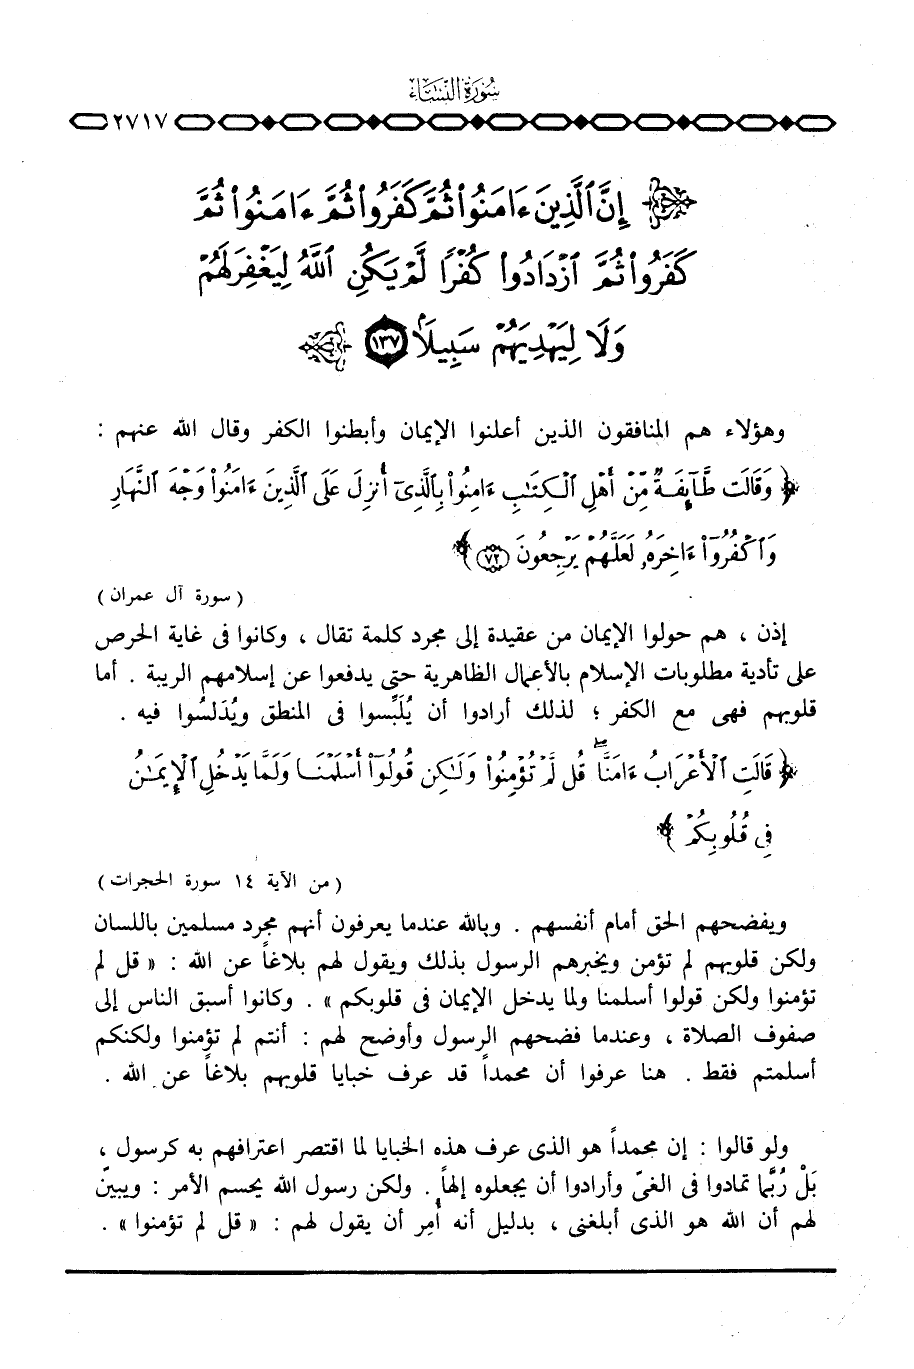 سُورَةُ النِّسَاءِ
٢٧١٧
إِنَّ ٱلَّذِينَ ءَامَنُوا۟ ثُمَّ كَفَرُوا۟ ثُمَّ ءَامَنُوا۟ ثُمَّ
كَفَرُوا۟ ثُمَّ ٱزْدَادُوا۟ كُفْرًا لَّمْ يَكُنِ ٱللَّهُ لِيَغْفِرَ لَهُمْ
وَلَا لِيَهْدِيَهُمْ سَبِيلًۢا ١٣٧
وهؤلاء هم المنافقون الذين أعلنوا الإيمان وأبطنوا الكفر وقال الله عنهم :
﴿ وَقَالَت طَّآئِفَةٌ مِّنْ أَهْلِ ٱلْكِتَٰبِ ءَامِنُوا۟ بِٱلَّذِىٓ أُنزِلَ عَلَى ٱلَّذِينَ ءَامَنُوا۟ وَجْهَ ٱلنَّهَارِ
وَٱكْفُرُوٓا۟ ءَاخِرَهُۥ لَعَلَّهُمْ يَرْجِعُونَ ٧٢ ﴾
( سورة آل عمران )
إذن ، هم حولوا الإيمان من عقيدة إلى مجرد كلمة تقال ، وكانوا فى غاية الحرص
على تأدية مطلوبات الإسلام بالأعمال الظاهرية حتى يدفعوا عن إسلامهم الريبة . أما
قلوبهم فهى مع الكفر ؛ لذلك أرادوا أن يُلَبِّسوا فى المنطق ويُدَلسُوا فيه .
﴿ قَالَتِ ٱلْأَعْرَابُ ءَامَنَّا ۖ قُل لَّمْ تُؤْمِنُوا۟ وَلَٰكِن قُولُوٓا۟ أَسْلَمْنَا وَلَمَّا يَدْخُلِ ٱلْإِيمَٰنُ
فِى قُلُوبِكُمْ ﴾
( من الآية ١٤ سورة الحجرات )
ويفضحهم الحق أمام أنفسهم . وبالله عندما يعرفون أنهم مجرد مسلمين باللسان
ولكن قلوبهم لم تؤمن ويخبرهم الرسول بذلك ويقول لهم بلاغاً عن الله : « قل لم
تؤمنوا ولكن قولوا أسلمنا ولما يدخل الإيمان فى قلوبكم » . وكانوا أسبق الناس إلى
صفوف الصلاة ، وعندما فضحهم الرسول وأوضح لهم : أنتم لم تؤمنوا ولكنكم
أسلمتم فقط . هنا عرفوا أن محمداً قد عرف خبايا قلوبهم بلاغاً عن الله .
ولو قالوا : إن محمداً هو الذى عرف هذه الخبايا لما اقتصر اعترافهم به كرسول ،
بَلْ رُبَّما تمادوا فى الغىّ وأرادوا أن يجعلوه إلهاً . ولكن رسول الله يحسم الأمر : ويبينّ
لهم أن الله هو الذى أبلغنى ، بدليل أنه أُمِر أن يقول لهم : « قل لم تؤمنوا » .